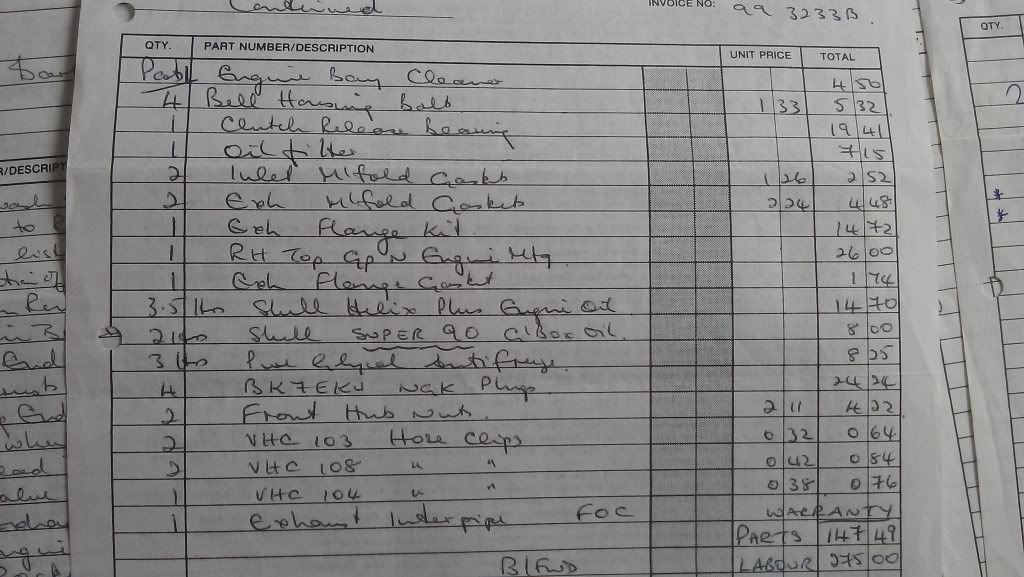 Continued
INVOICE NO: 99 3233B.
QTY. PART NUMBER/DESCRIPTION UNIT PRICE TOTAL
Engine Bay Cleaner 4 50
4 Bell Housing Bolts 1 33 5 32
1 Clutch Release Bearing 19 41
1 Oil filter 7 15
2 Inlet M/fold Gaskets 1 26 2 52
2 Exh M/fold Gaskets 2 24 4 48
1 Exh Flange Kit. 14 72
1 RH Top Gp N Engine Mtg 26 00
1 Exh Flange Gasket 1 74
3.5 ltrs Shell Helix Plus Engine Oil 14 70
2 ltrs Shell SUPER 90 G/Box Oil. 8 00
3 ltrs Pure Glycol Antifreeze. 8 25
4 BK7EKU NGK Plugs 24 24
2 Front Hub Nuts. 2 11 4 22
2 VHC 103 Hose Clips 0 32 0 64
2 VHC 108 " " 0 42 0 84
1 VHC 104 " " 0 38 0 76
1 Exhaust Interpipe FOC WARRANTY
PARTS 147 49
B/FWD LABOUR 275 00
QTY.
R/DESCRIPT
to
list
when